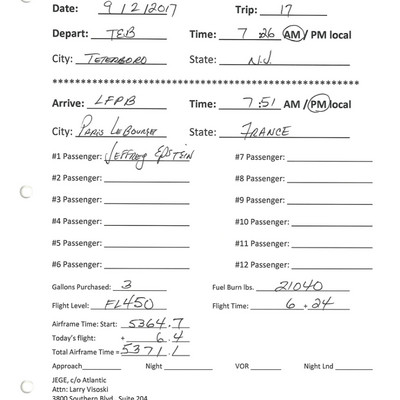 Date: 9/2/2017 Trip: 17
Depart: TEB Time: 7:26 AM / PM local
City: TETERBORO State: N.J.
******************************************************
Arrive: LFPB Time: 7:51 AM / PM local
City: PARIS LEBOURGE State: FRANCE
#1 Passenger: JEFFREY EPSTEIN #7 Passenger:
#2 Passenger: #8 Passenger:
#3 Passenger: #9 Passenger:
#4 Passenger: #10 Passenger:
#5 Passenger: #11 Passenger:
#6 Passenger: #12 Passenger:
Gallons Purchased: 3 Fuel Burn lbs. 21040
Flight Level: FL450 Flight Time: 6+24
Airframe Time: Start: 5364.7
Today's flight: + 6.4
Total Airframe Time = 5371.1
Approach Night VOR Night Lnd
JEGE, c/o Atlantic
Attn: Larry Visoski
3800 Southern Blvd. Suite 204